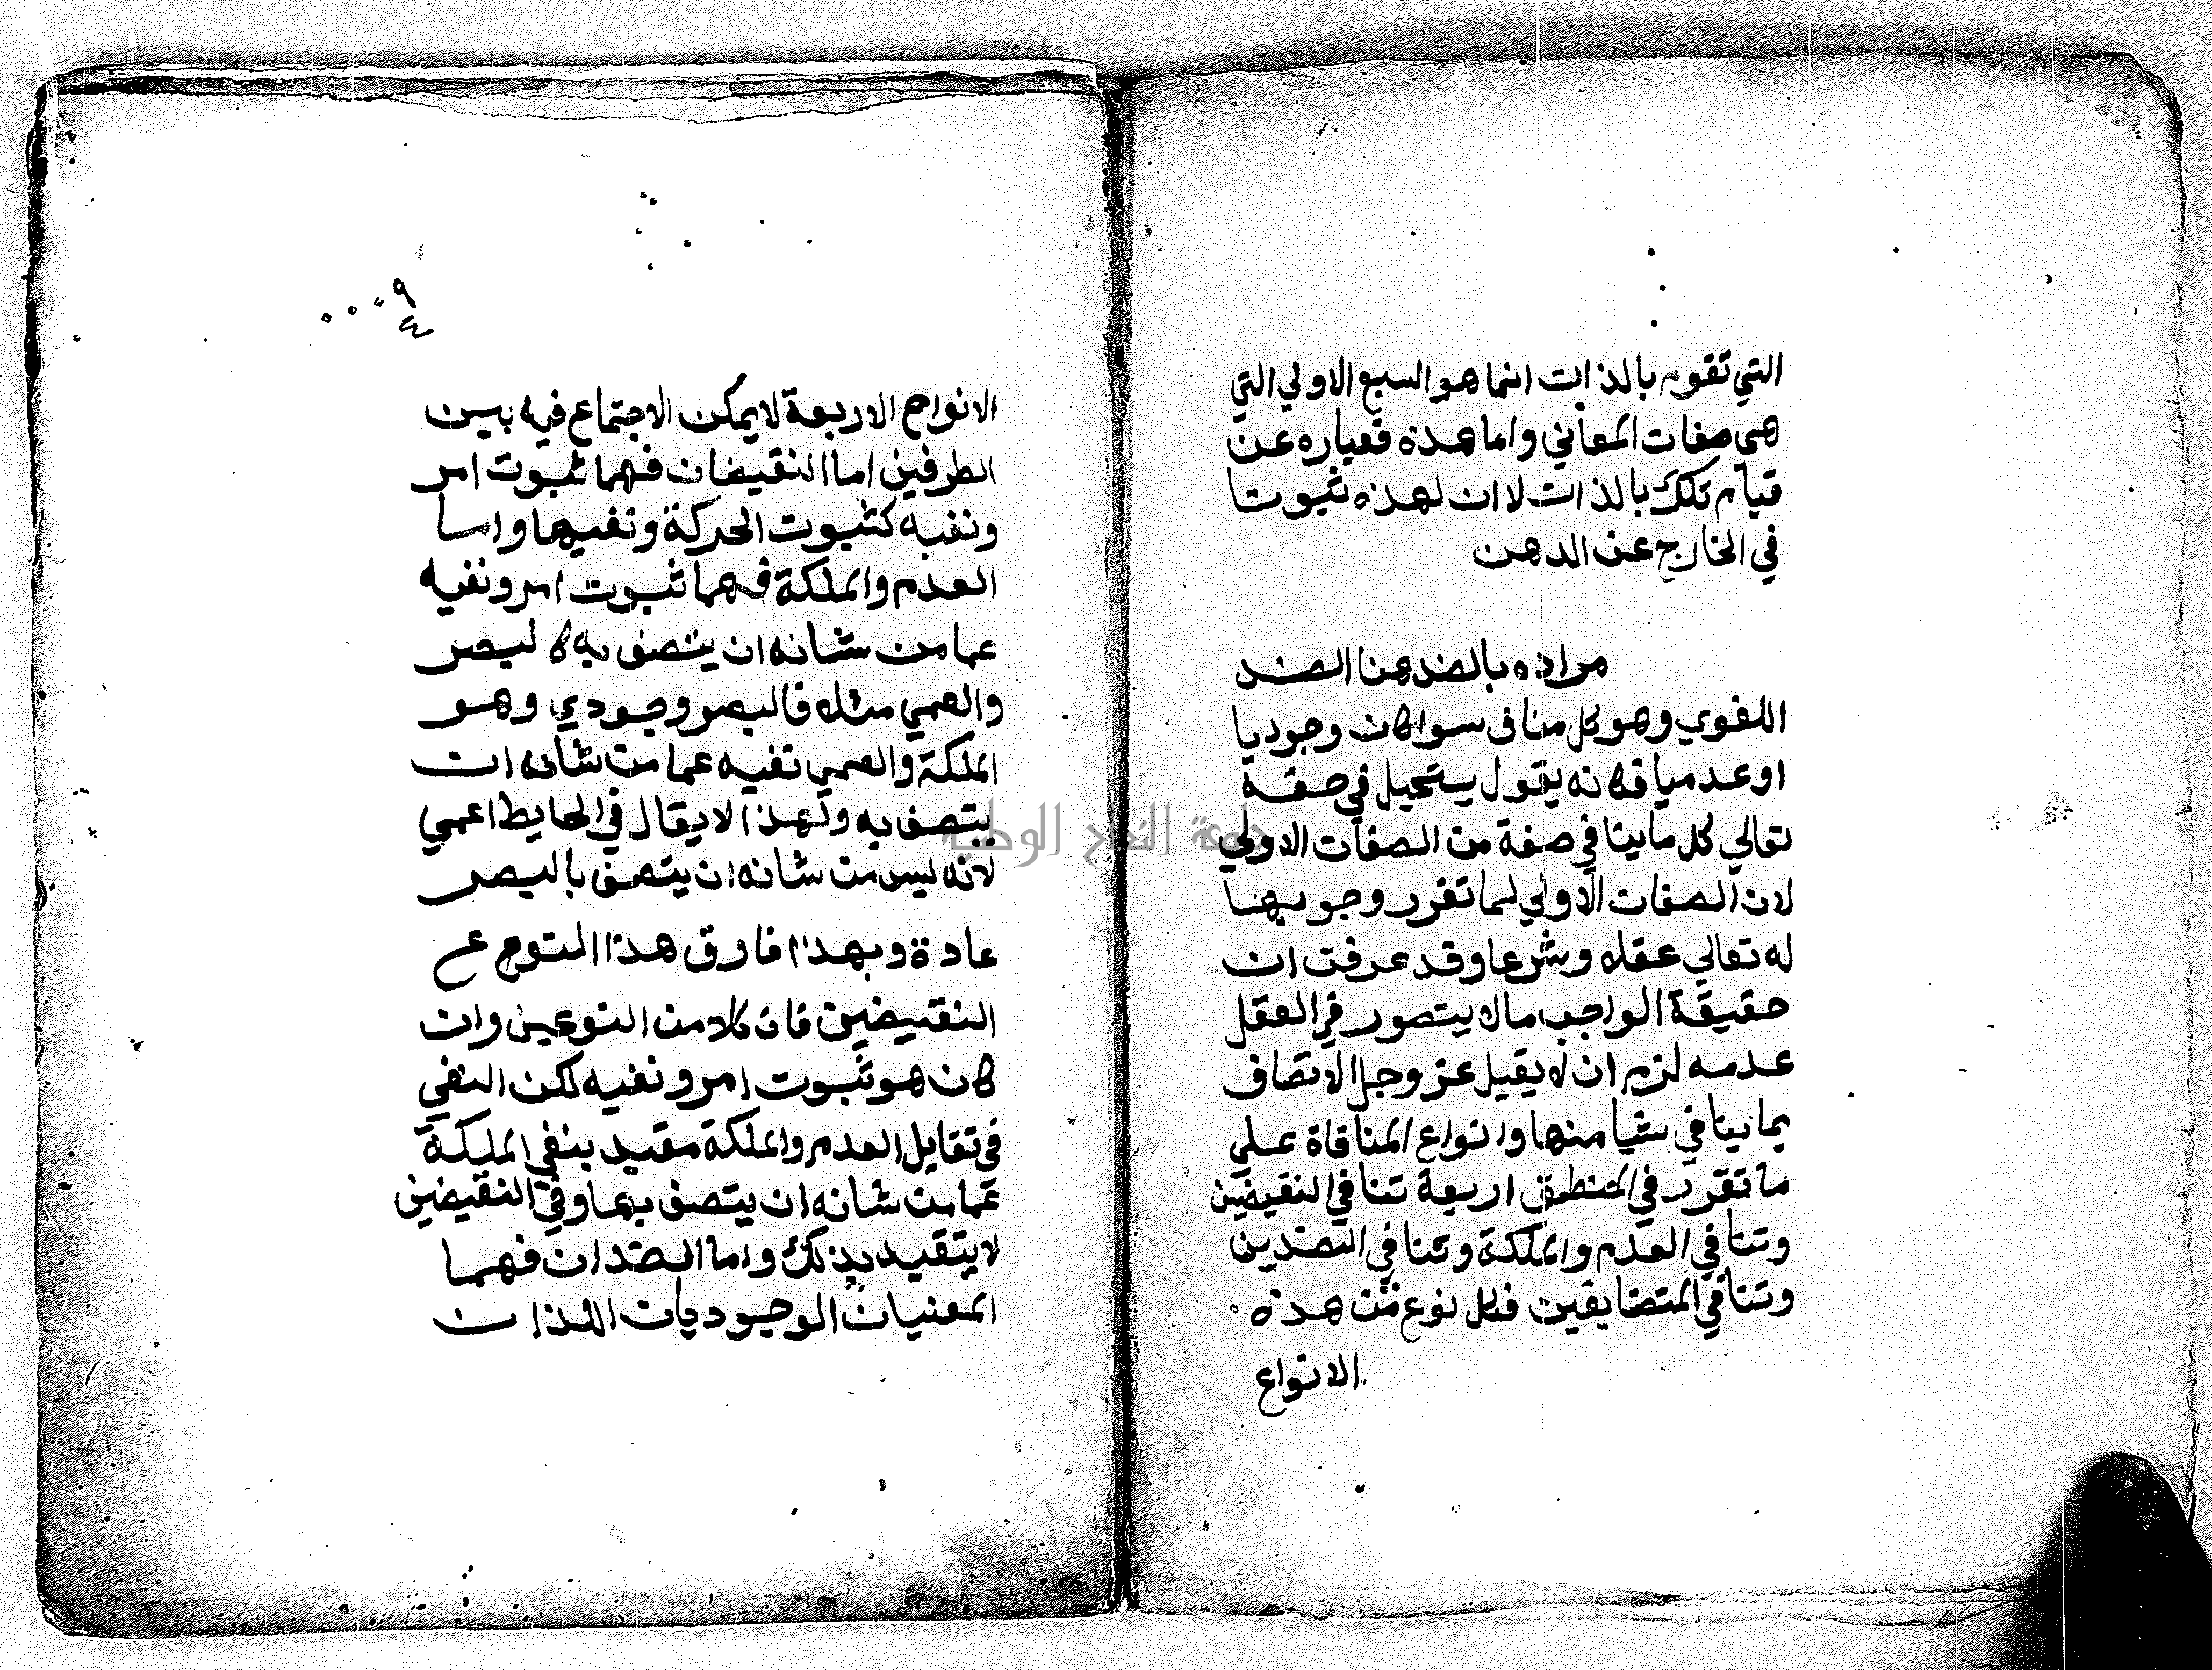 التي تقوم بالذات انما هو السبع الاولي التي
هي صفات المعاني واما هذه فعباره عن
قيام تلك بالذات لا ان لهذه ثبوتا
في الخارج عن الدهن
مراده بالضد هنا الضد
اللغوي وهو كل منافى سواكان وجوديا
اوعدميا فكانه يقول يستحيل في حقه
تعالي كل ماينافي صفة من الصفات الاولي
لان الصفات الاولي لما تقرر وجوبها
له تعالي عقلا وشرعا وقد عرفت ان
حقيقة الواجب مالا يتصور في العقل
عدمه لزم ان لا يقبل عز وجل الاتصاف
بماينافي شيا منها وانواع المنافاة علي
ما تقرر في المنطق اربعة تنافي النقيضين
وتنافي العدم والملكة وتنافي الضدين
وتنافي المتضايفين فكل نوع من هذه
الانواع
٩
الانواع الاربعة لايمكن الاجتماع فيه بين
الطرفين اما النقيضان فهما ثبوت امر
ونفيه كثبوت الحركة ونفيها واما
العدم والملكة فهما ثبوت امر ونفيه
عما من شانه ان يتصف به كا لبصر
والعمي مثلا فالبصر وجودي وهو
الملكة والعمي نفيه عما من شانه ان
يتصف به ولهذا لا يقال في الحايط اعمي
لانه ليس من شانه ان يتصف بالبصر
عادة وبهذا فارق هذا النوع
النقيضين فان كلا من النوعين وان
كان هو ثبوت امر ونفيه لكن النفي
في تقابل العدم والملكة مقيد بنفي الملكة
عما من شانه ان يتصف بها وفي النقيضين
لا يتقيد بذلك واما الضدان فهما
المعنيان الوجوديان اللذان
جامعة النجاح الوطنية